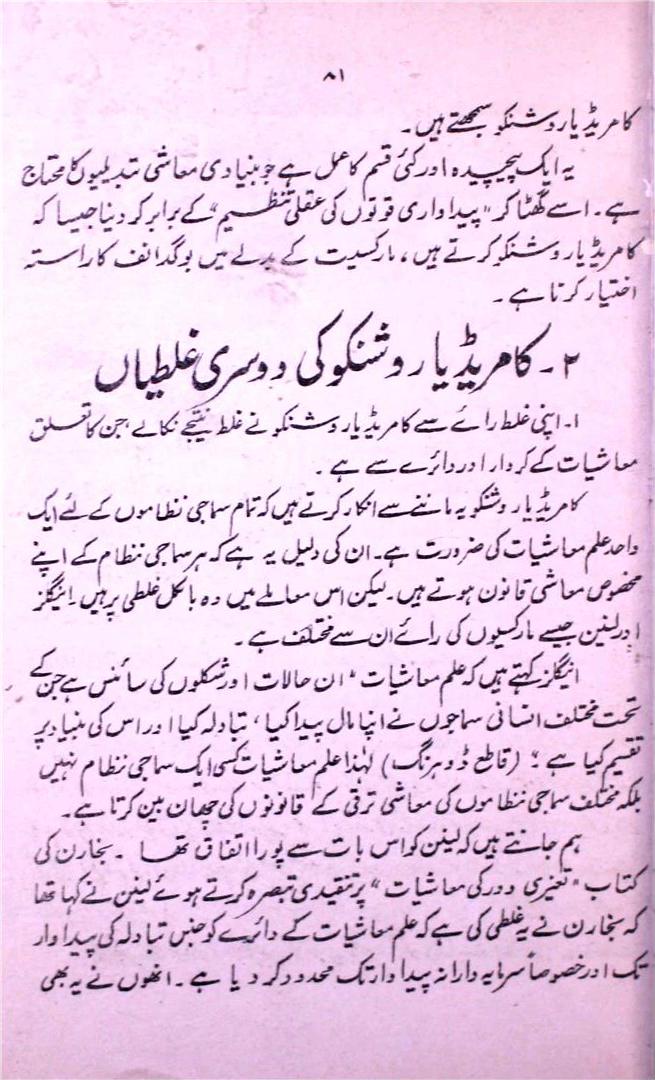 ۸۱
کامریڈ یاروشنکو سمجھتے ہیں۔
یہ ایک پیچیدہ اور کئی قسم کا عمل ہے جو بنیادی معاشی تبدیلیوں کا محتاج
ہے۔ اسے گھٹا کر "پیداواری قوتوں کی عقلی تنظیم" کے برابر کر دینا جیسا کہ
کامریڈ یاروشنکو کرتے ہیں، مارکسیت کے بدلے میں بوگدانف کا راستہ
اختیار کرتا ہے۔
۲۔ کامریڈ یاروشنکو کی دوسری غلطیاں
۱۔ اپنی غلط رائے سے کامریڈ یاروشنکو نے غلط نتیجے نکالے جن کا تعلق
معاشیات کے کردار اور دائرے سے ہے۔
کامریڈ یاروشنکو یہ ماننے سے انکار کرتے ہیں کہ تمام سماجی نظاموں کے لئے ایک
واحد علم معاشیات کی ضرورت ہے۔ ان کی دلیل یہ ہے کہ ہر سماجی نظام کے اپنے
مخصوص معاشی قانون ہوتے ہیں۔ لیکن اس معاملے میں وہ بالکل غلطی پر ہیں۔ اینگلز
اور لینن جیسے مارکسیوں کی رائے ان سے مختلف ہے۔
اینگلز کہتے ہیں کہ علم معاشیات "ان حالات اور شکلوں کی سائنس ہے جن کے
تحت مختلف انسانی سماجوں نے اپنا مال پیدا کیا، تبادلہ کیا اور اس کی بنیاد پر
تقسیم کیا ہے" (قاطع ڈوہرنگ) لہٰذا علم معاشیات کسی ایک سماجی نظام نہیں
بلکہ مختلف سماجی نظاموں کی معاشی ترقی کے قانونوں کی چھان بین کرتا ہے۔
ہم جانتے ہیں کہ لینن کو اس بات سے پورا اتفاق تھا۔ بخارن کی
کتاب "تغیری دور کی معاشیات" پر تنقیدی تبصرہ کرتے ہوئے لینن نے کہا تھا
کہ بخارن نے یہ غلطی کی ہے کہ علم معاشیات کے دائرے کو جنس تبادلہ کی پیداوار
تک اور خصوصاً سرمایہ دارانہ پیداوار تک محدود کر دیا ہے۔ انھوں نے یہ بھی